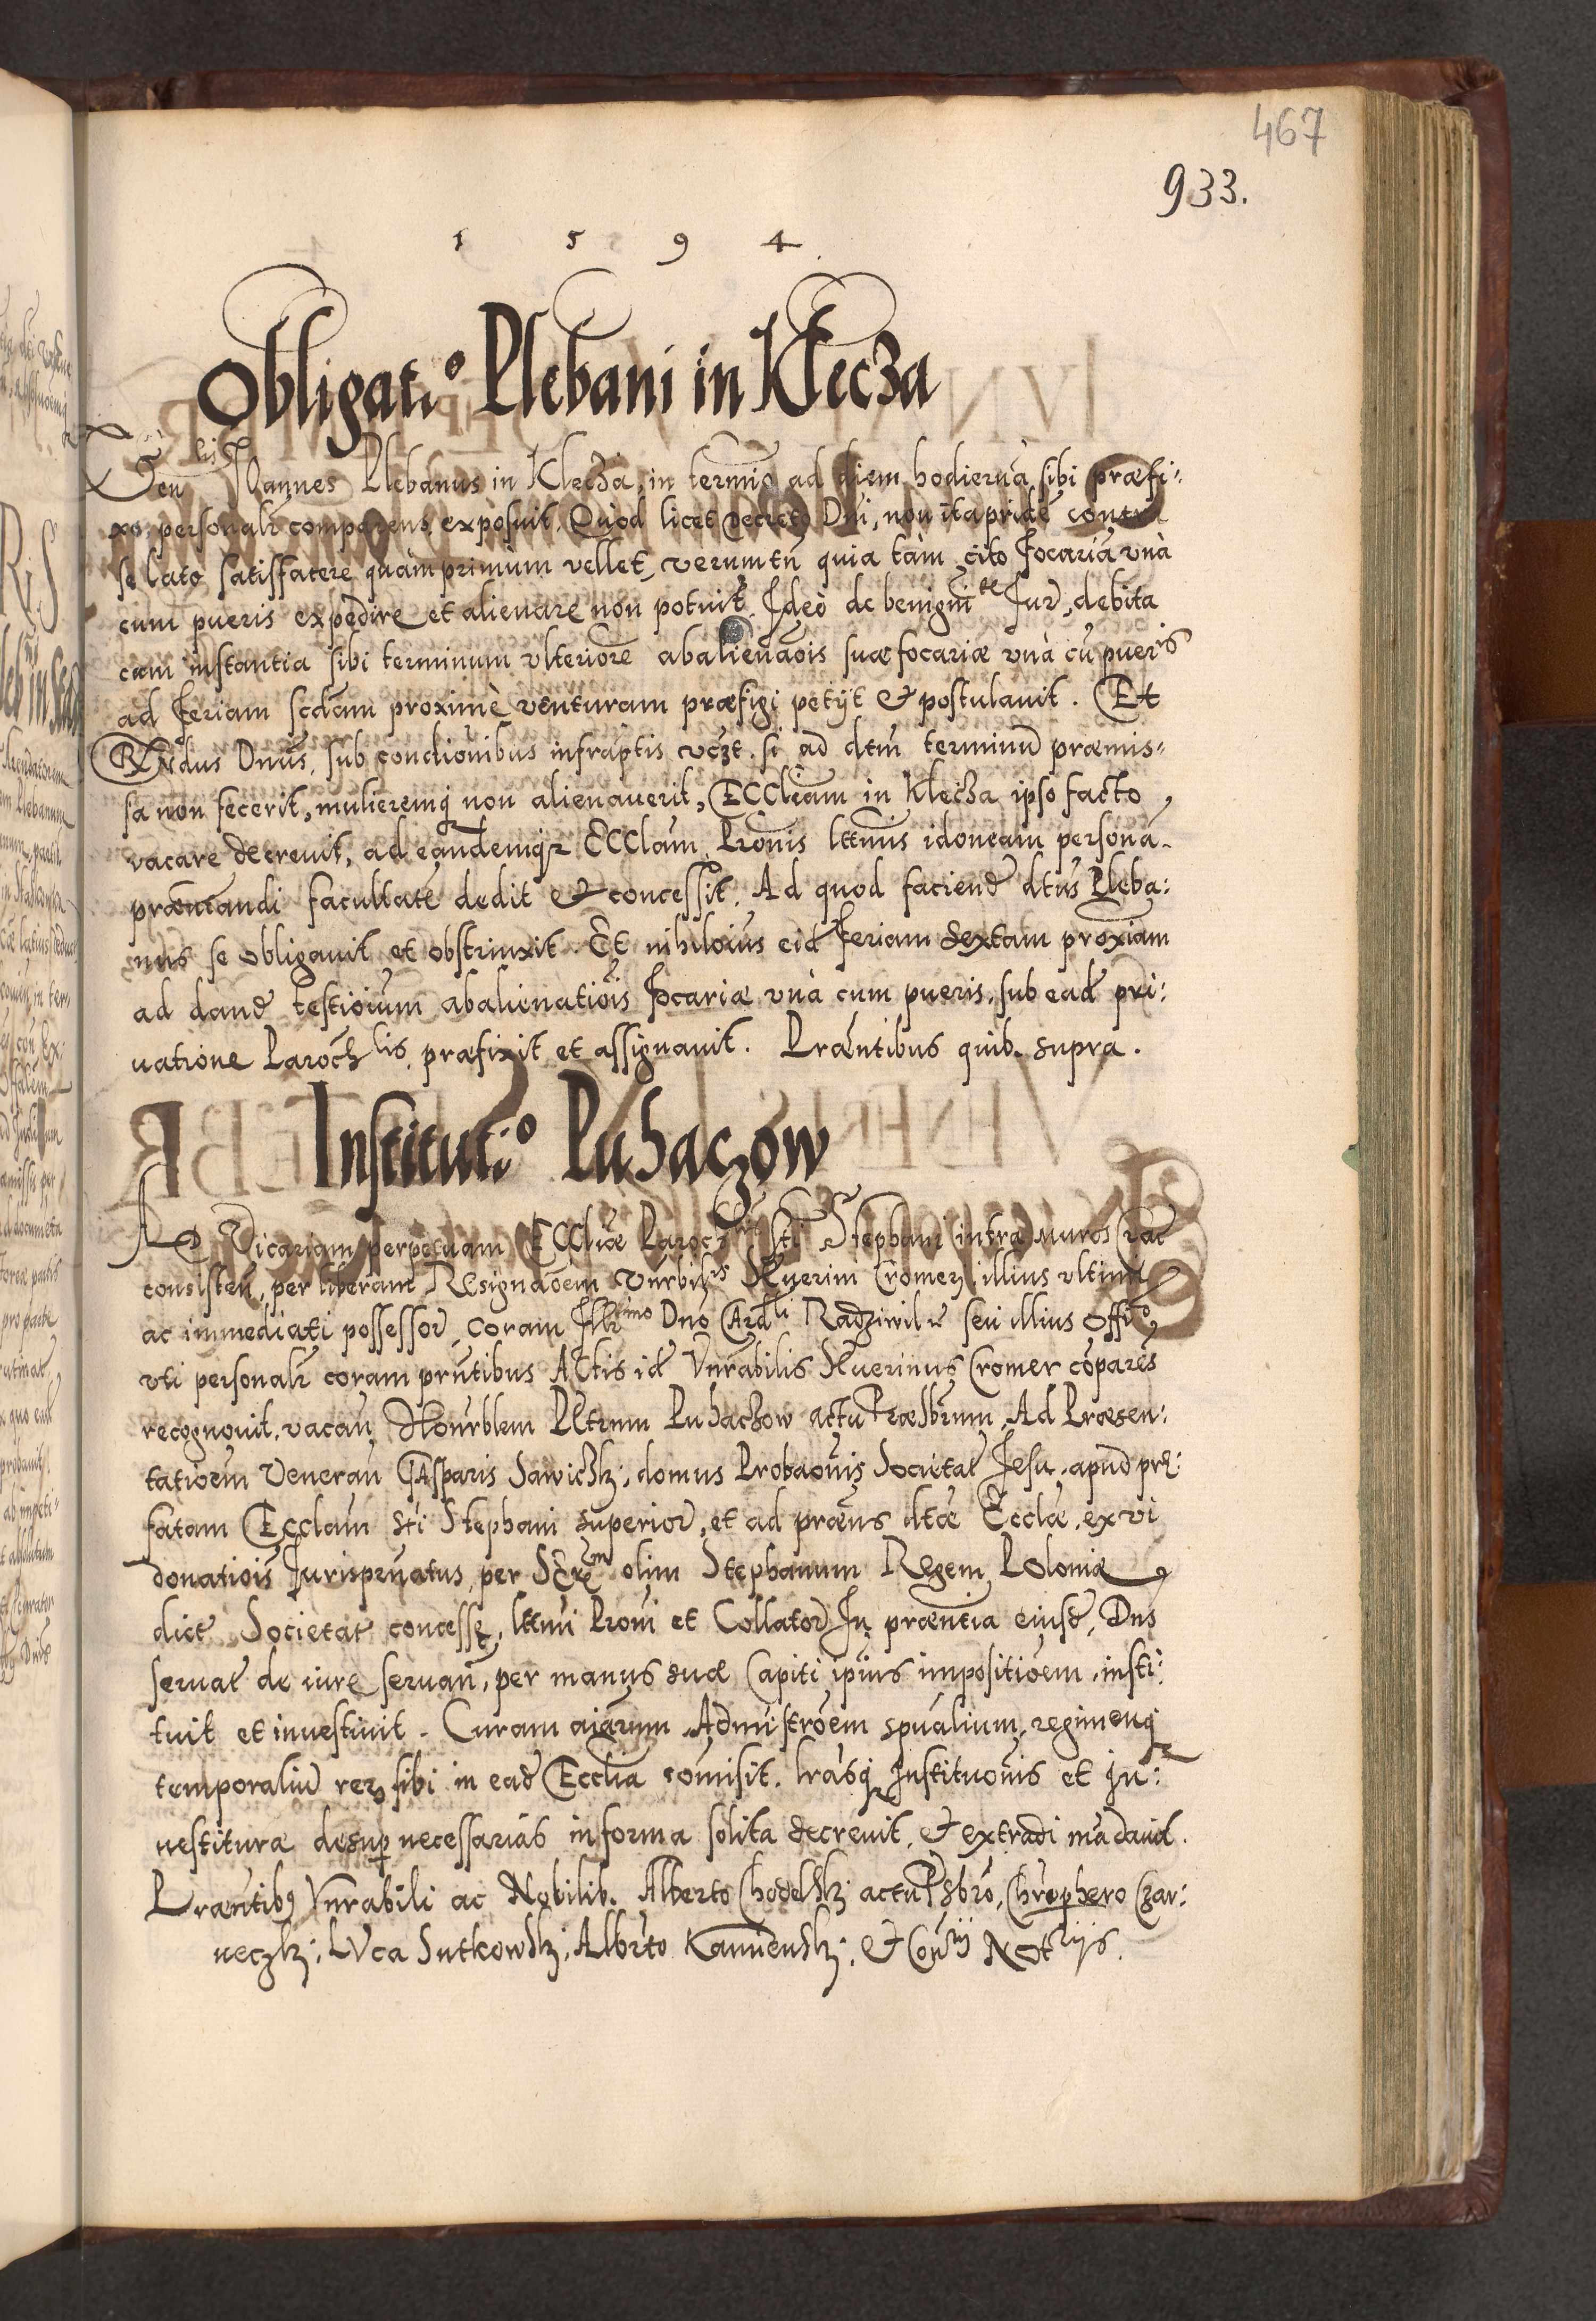 467
933.
1 5 9 4
Obligati° Plebani in Klecza
Ven lis Joannes Plebanus in Klecza, in termīo ad diem hodiernā sibi præfi:
xo, personalr comparens, exposuit. Quod licet Decreto Dni, non ita pridē contra
se lato satisfacere quàm primùm vellet, verumtn̄ quia tàm cito focariā vnà
cum pueris expedire et alienare non potuit. Ideò de benignite Jur, debita
cum instantia sibi terminum vlteriorē abalienaōis suæ focariæ vnà cū pueris
ad feriam scdam proximè venturam præfigi petÿt & postulauit. Et
Rndus Dnus, sub conditionibus infraptis vczt. si ad dtm̄ terminū præmis:
sa non fecerit, mulieremq̨ non alienauerit, Eccleam in Klecza ipso facto
vacare decreuit, ad eandemq̨ Ecclam, Pronis lttmis idoneam personā
præntandi facultatē dedit & concessit. Ad quod faciend dtus Pleba:
nus se obligauit et obstrinxit. Et nihiloīus eid feriam sextam proxiam
ad dand testioium abalienatiois focariæ vnà cum pueris, sub ead pri:
uatione Paroch lis, præfixit et assignauit. Præntibus quib. supra.
Instituti° Puhaczow
Ad Vicariam perpetuam Eccliæ Paroch lis Sti Stephani intra muros Crac
consisten, per liberam Resignaōem Vnrbilis Seuerini Cromer, illius vltimi
ac immediati possessor, coram Illrmo Dno Cardli Radziwil seu illius Offio,
vti personalr coram prn̄tibus Actis id Vnrabilis Seuerinus Cromer cōparēs
recognouit, vacan, Honrblem Petrum Puhaczow actu Præsbrum, Ad Præsen:
tatioem Veneran Gasparis Sawiczk: domus Probaonis Societat Jesu, apud præ:
fatam Ecclam Sti Stephani superior, et ad præns dtæ Ecclæ, ex vi
donatiois Jurisprnatus, per Serm olim Stephanum Regem Poloniæ
dict Societat concesse, lttmi Proni et Collator In præntia eiusd, Dns
seruat de iure seruan, per manus suæ Capiti ipius impositioem, insti:
tuit et inuestiuit. Curam aiarum Admistroem spualium, regimenq̨
temporaliū rer sibi in ead Ecclia cōmisit. lrasq̨ Instituonis et In:
uestituræ desup necessarias in forma solita decreuit, & extradi mādauit.
Præntib9 Vnrabili ac Nobilib. Alberto Chodelsk: actu Psbro, Chrophero Czar:
neczk: Luca Sutkowsk: Albrto Kamiensk: & Conrij Notrijs.